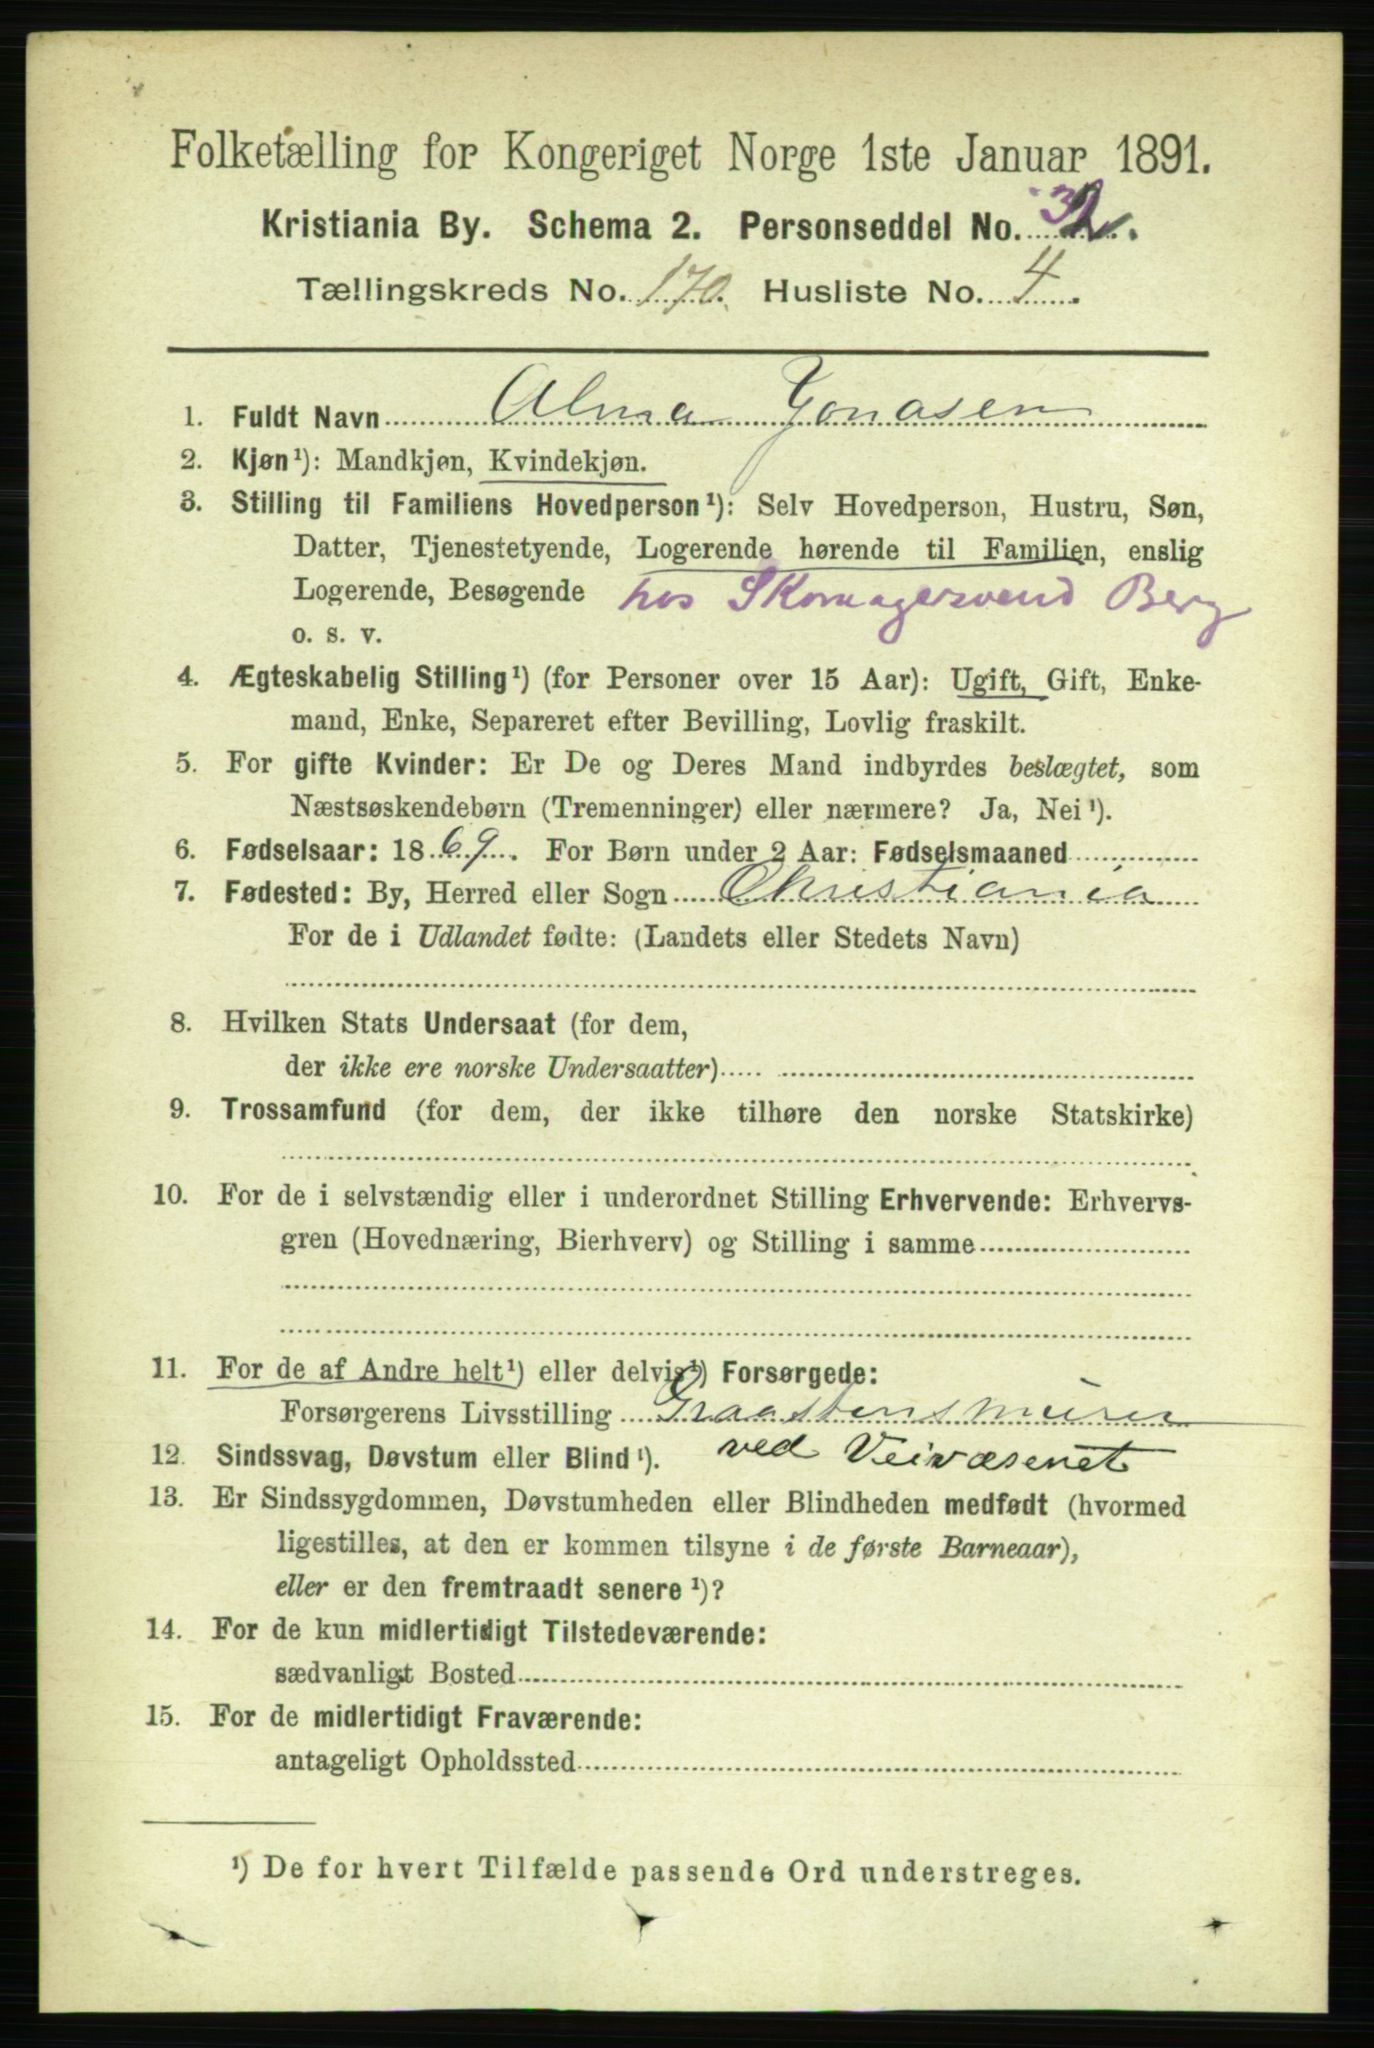 Folketælling for Kongeriget Norge 1ste Januar 1891.
Kristiania By. Schema 2. Personseddel No. 32.
Tællingskreds No. 170. Husliste No. 4.
1. Fuldt Navn Alma Jonasen
2. Kjøn¹): Mandkjøn, Kvindekjøn.
3. Stilling til Familiens Hovedperson¹): Selv Hovedperson, Hustru, Søn,
Datter, Tjenestetyende, Logerende hørende til Familien, enslig
Logerende, Besøgende hos Skomagersvend Berg
o. s. v.
4. Ægteskabelig Stilling¹) (for Personer over 15 Aar): Ugift, Gift, Enke-
mand, Enke, Separeret efter Bevilling, Lovlig fraskilt.
5. For gifte Kvinder: Er De og Deres Mand indbyrdes beslægtet, som
Næstsøskendebørn (Tremenninger) eller nærmere? Ja, Nei¹).
6. Fødselsaar: 1869. For Børn under 2 Aar: Fødselsmaaned
7. Fødested: By, Herred eller Sogn Christiania
For de i Udlandet fødte: (Landets eller Stedets Navn)
8. Hvilken Stats Undersaat (for dem,
der ikke ere norske Undersaatter)
9. Trossamfund (for dem, der ikke tilhøre den norske Statskirke)
10. For de i selvstændig eller i underordnet Stilling Erhvervende: Erhvervs-
gren (Hovednæring, Bierhverv) og Stilling i samme
11. For de af Andre helt¹) eller delvis¹) Forsørgede:
Forsørgerens Livsstilling Graastensmurer
ved Veivæsenet
12. Sindssvag, Døvstum eller Blind¹).
13. Er Sindssygdommen, Døvstumheden eller Blindheden medfødt (hvormed
ligestilles, at den er kommen tilsyne i de første Barneaar),
eller er den fremtraadt senere¹)?
14. For de kun midlertidigt Tilstedeværende:
sædvanligt Bosted
15. For de midlertidigt Fraværende:
antageligt Opholdssted
¹) De for hvert Tilfælde passende Ord understreges.